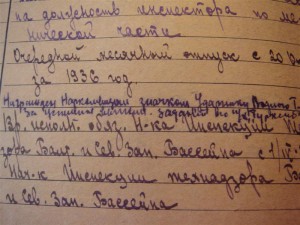 на должность инспектора по ме
нической части
Очередной месячный отпуск с 20
за 1936 год.
Награжден Наркомводом значком Ударнику Водного
За успешное
Вр. исполн. обяз. Н-ка Инспекции
дзора Балт. и Сев. Зап. Бассейна с 1/
Нач-к Инспекции технадзора Б
и Сев. Зап. Бассейна